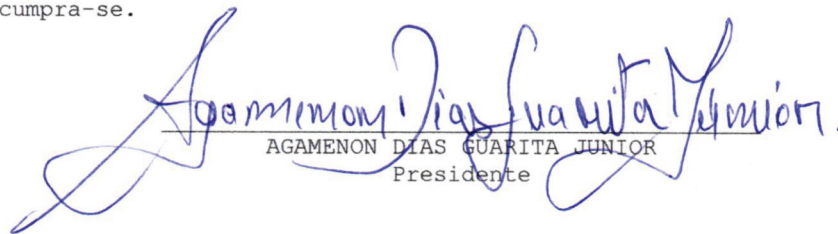 cumpra-se.
Agamenon Dias Guarita Junior
AGAMENON DIAS GUARITA JUNIOR
Presidente